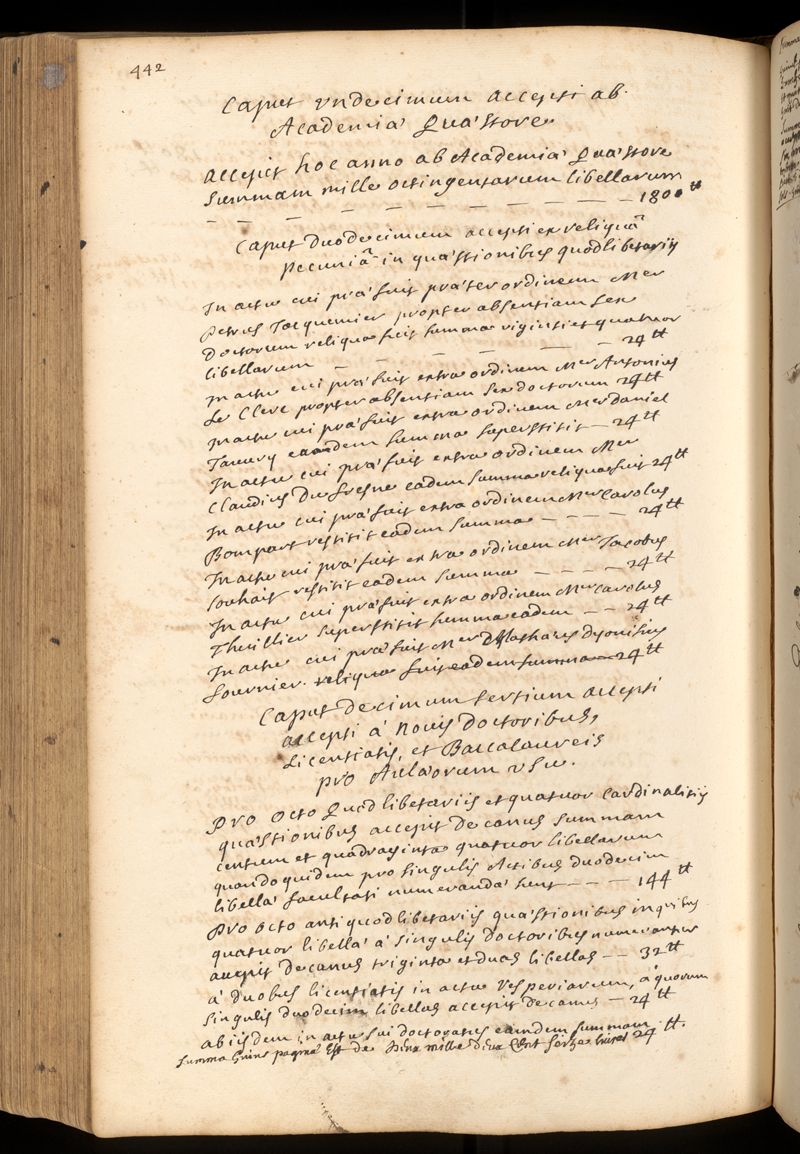 442
Caput undecimum accepti ab
Academiâ Quæstore
accepit hoc anno ab Academiæ Quæstore
summam mille octingentarum libellarum
1800 tt
Caput duodecimum accepti ex reliquâ
pecuniâ in quæstionibus quodlibetariis
In actu cui præfuit præter ordinem Mer
Petrus Jacquemier propter absentiam sex
Doctorum reliqua fuit summa viginti et quatuor
libellarum 24 tt
In actu cui præfuit extra ordinem Mer Antonius
Le Clerc propter absentiam sex doctorum 24 tt
In actu cui præfuit extra ordinem Mer Daniel
Tauvry eadem summa superstitit 24 tt
In actu cui præfuit extra ordinem Mer
Claudius Du fresne eadem summa reliqua fuit 24 tt
In actu cui præfuit extra ordinem Mer Carolus
Bompart restitit eadem summa 24 tt
In actu cui præfuit extra ordinem Mer Jacobus
Souhait restitit eadem summa 24 tt
In actu cui præfuit extra ordinem Mer Carolus
Thuillier superstitit summa eadem 24 tt
In actu cui præfuit Mer Dyonisius
fournier. reliqua fuit eadem summa 24 tt
Caput decimum tertium accepti
accepti à novis Doctoribus,
Licentiatis, et Baccalaureis
pro Aulæorum usu.
Pro octo Quodlibetariis et quatuor Cardinalitiis
quæstionibus accepit decanus summam
centum et quadraginta quatuor libellarum
quandoquidem pro singulis Actibus duodecim
libellæ facultati numerandæ sunt 144 tt
Pro octo antiquodlibetariis quæstionibus in quibus
quatuor libellæ à singulis doctoribus numerantur
accepit decanus triginta et duas libellas 32 tt
à duobus licentiatis in actu vesperiarum, à quorum
singulis duodecim libellas accepit decanus 24 tt
ab iisdem in actu sui doctoratus eamdem summam
24 tt.
Summa huius paginæ Est de deux mille deux Cent